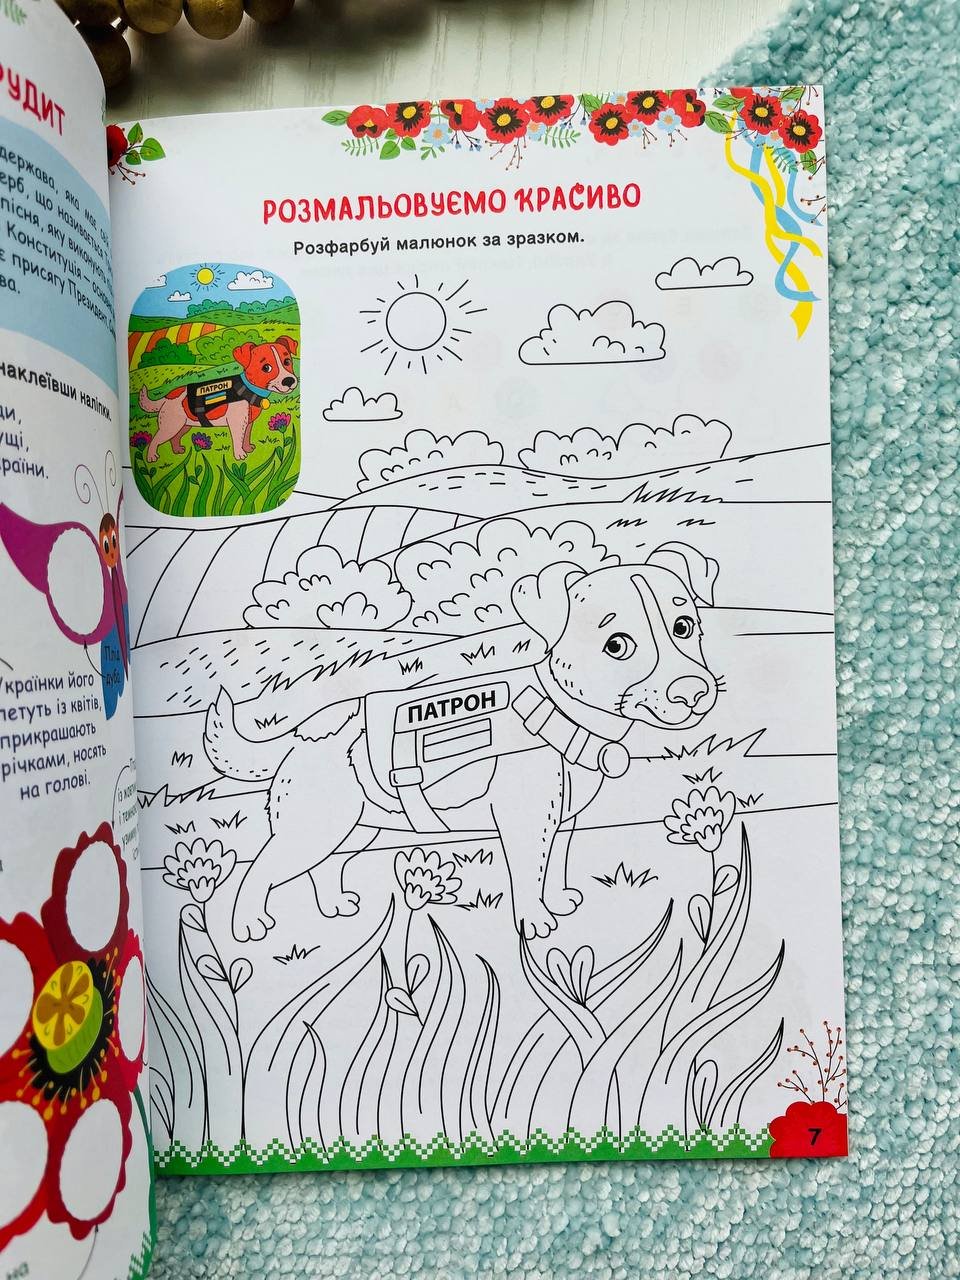 держава, яка має
герб, що називається
пісня, яку виконують
Конституція – основний
є присягу Президент
наклеївши наліпки.
країни.
Плід
дуба
Українки його
летуть із квітів,
прикрашають
річками, носять
на голові.
РОЗМАЛЬОВУЄМО КРАСИВО
Розфарбуй малюнок за зразком.
ПАТРОН
ПАТРОН
7